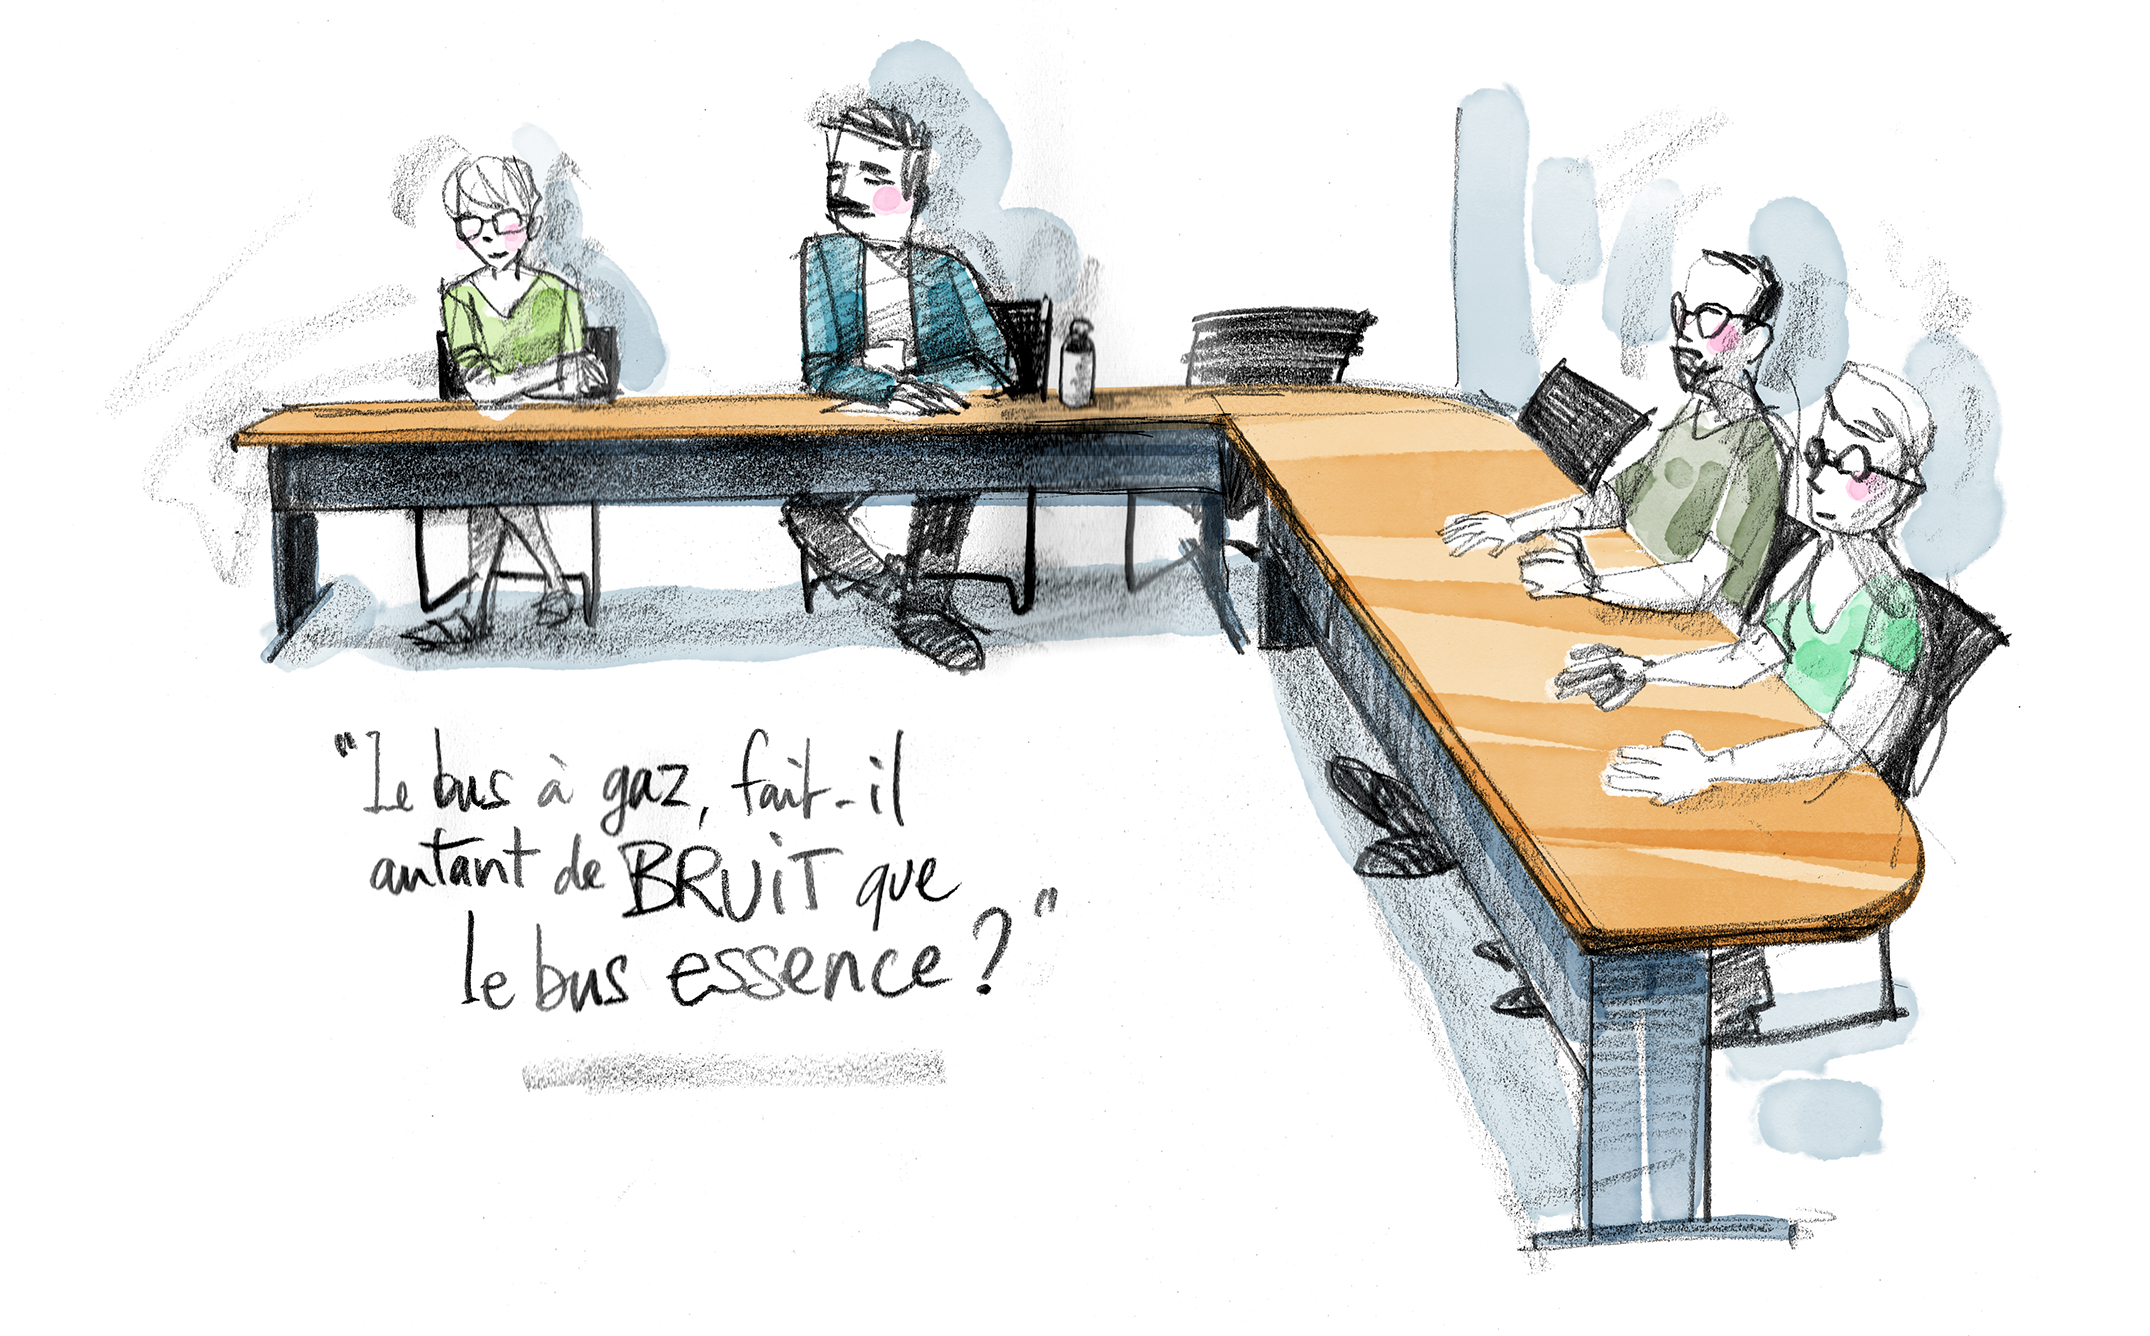 "Le bus à gaz, fait-il
autant de BRUiT que
le bus essence ?"